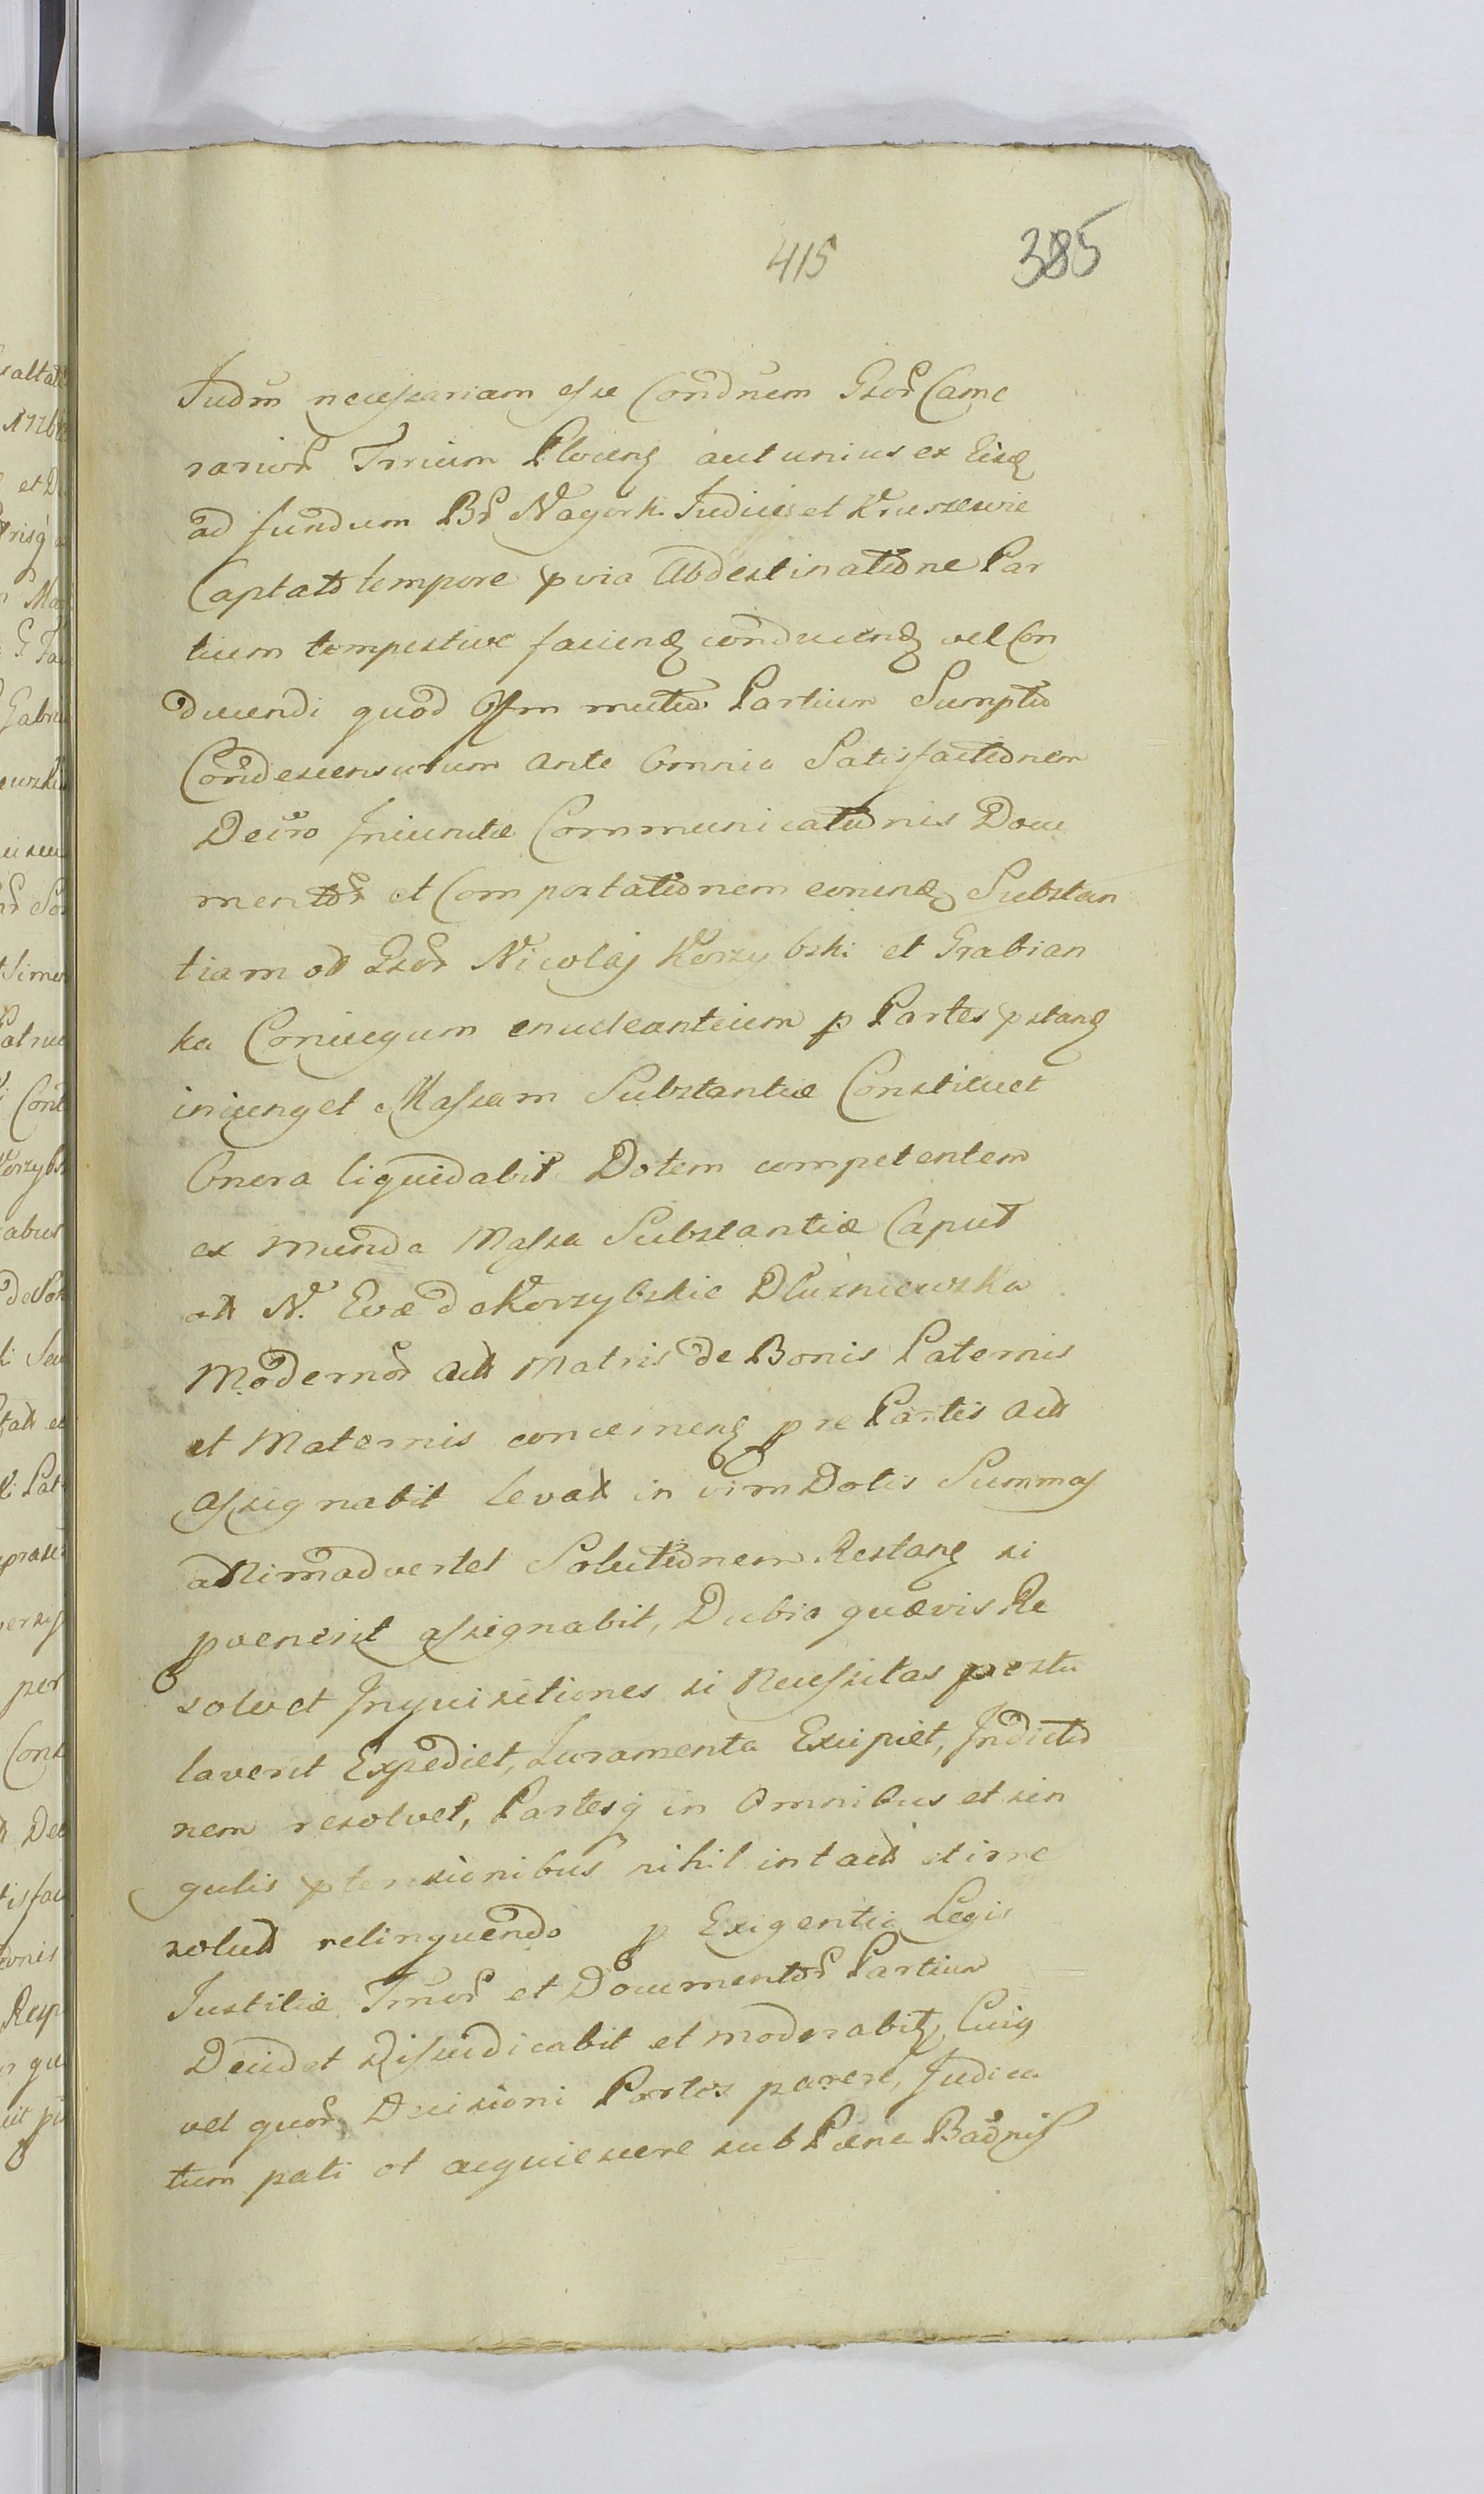 415 385
Judm necessariam esse Condnem Gsor Came
rarior Trrium Plocens aut unius ex Eisd
ad fundum Br Nagorki Judicis et Kruszewie
Captato tempore pvia Abdestinatione Par
tium tempestive faciend conducend vel Con
ducendi quod Offm mutuo Partium Sumptu
Condescensurum ante Omnia Satisfactionem
Decro Iniunctae Communicationis Docu
mentor et Comportationem concned Substan
tiam ol Gsor Nicolaj Korzybski et Grabian
ka Coniugum enucleantium p Partes pstand
iniunget Massam Substantiae Constituet
Onera liquidabit Dotem competentem
ex munda Massa Substantiae Caput
olt N. Evae de Korzybskie Dluzniewska
Modernor Actt Matris de Bonis Paternis
et Maternis concernens pro Partis Actt
assignabit levatt in vim Dotis Summas
annimadvertet Solutionem Restans si
pvenerit assignabit, Dubia quaevis Re
solvet Inquisitiones si Necessitas postu
laverit Expediet, Juramenta Excipiet, Indictio
nem resolvet, Partesq in Omnibus et sin
gulis ptensionibus nihil intactt et irre
solutt relinquendo p Exigentia Legis
Justitiae Jrnor et Documentor Partium
Decidet Disiudicabit et moderabit, Cuius
vel quor, Decisioni Partes parere, Judica
tum pati et acquiescere sub Poena Badnis